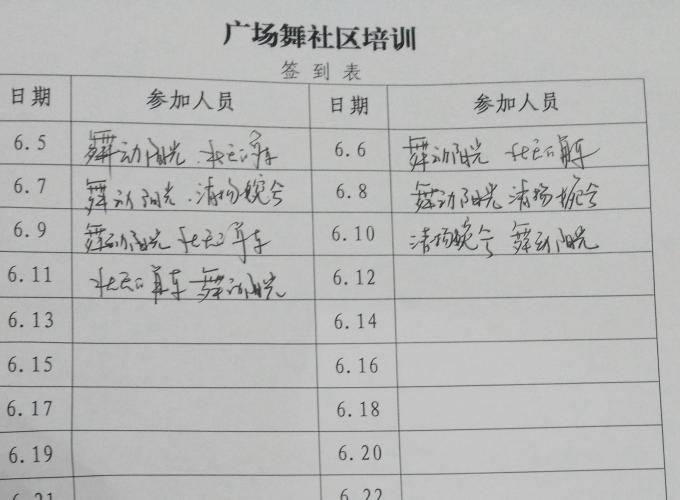 广场舞社区培训
签到表
日期 参加人员 日期 参加人员
6.5 舞动阳光 6.6 舞动阳光
6.7 舞动阳光 清扬婉兮 6.8 舞动阳光 清扬婉兮
6.9 舞动阳光 6.10 清扬婉兮 舞动阳光
6.11 舞动阳光 6.12
6.13 6.14
6.15 6.16
6.17 6.18
6.19 6.20
6.21 6.22